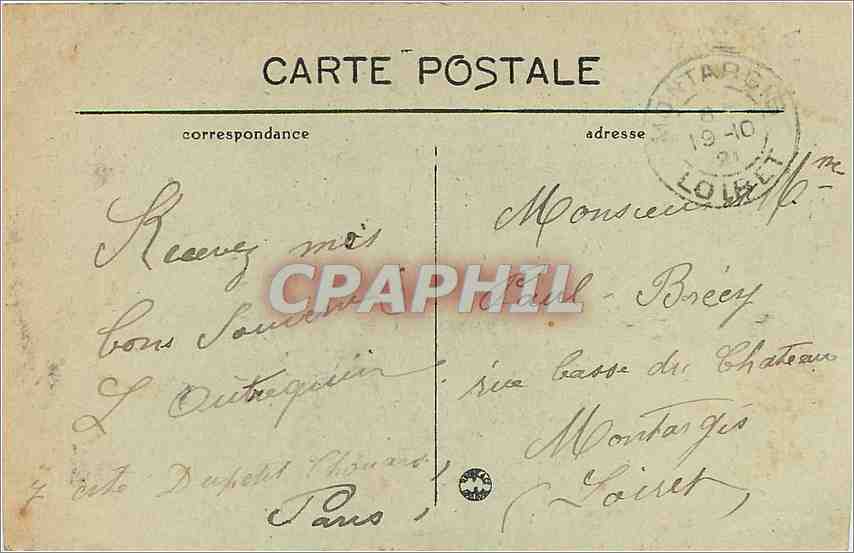 CARTE POSTALE
correspondance
adresse
MONTARGIS
8
19-10
21
LOIRET
Recevez mes
bons Souvenirs
L Outrequin
7 cité Dupetit Thouars,
Paris,
Monsieur et Mme
Paul Brécy
rue basse du Chateau
Montargis
(Loiret)
CPAPHIL